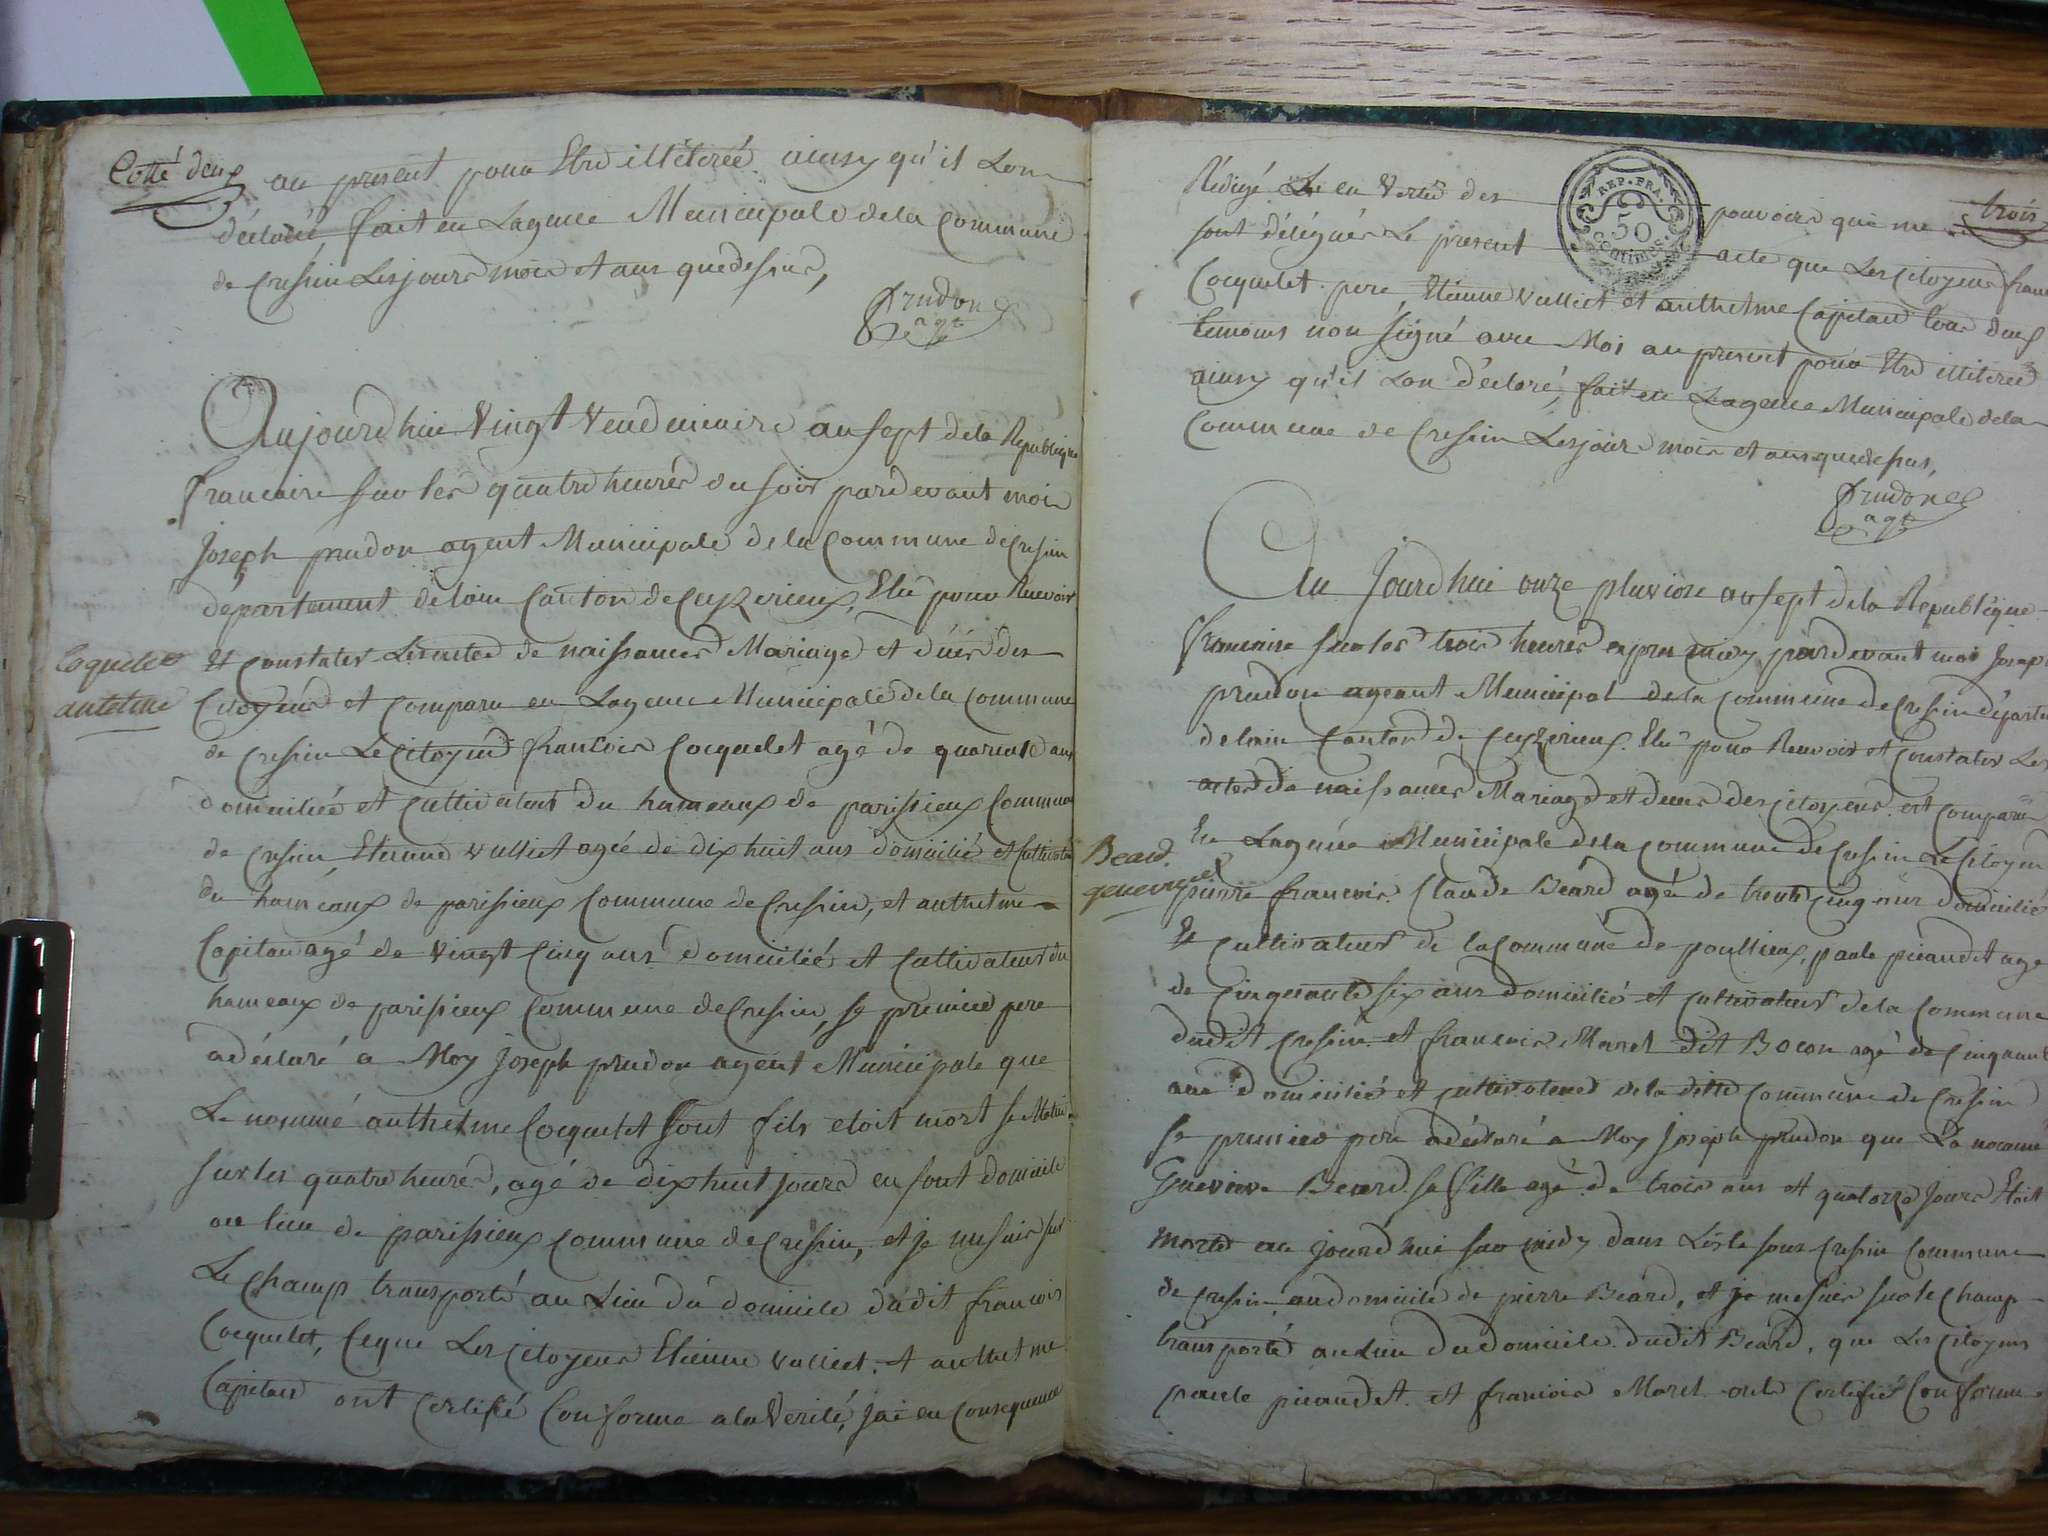 Cotté deux
au present pour Etre illitérée ainsy qu'il Lon
déclaré, fait en Lagence Municipale de la Commune
de Cressin Les jours mois et ans que dessus,
prudon
agt
Aujourdhui Vingt Vendemiaire an sept de la Republique
francaise sur les quatre heures du soir pardevant moi
Joseph prudon agent Municipale de la Commune de Cressin
département de lain Canton de Ceyzerieux, Elu pour Recevoir
Et Constater Les actes de naissances Mariage et décès des
Coquelet
antelme
Citoyens et comparu en Lagence Municipale de la Commune
de Cressin Le Citoyens francois Cocquelet agé de quarente ans
domiciliée et Cultivateur du hameaux de parissieux Commune
de Cressin, Etienne Vulliet agée de dix huit ans domicilié et Cultivateur
du hameaux de parissieux Commune de Cressin, et anthelme
Capitan agé de Vingt Cinq ans domiciliée et Cultivateur du
hameaux de parissieux Commune de Cressin, le premier pere
a déclaré a Moy Joseph prudon agent Municipale que
Le nommé anthelme Cocquelet sont fils etoit mort se Matin
sur les quatre heures, agé de dix huit Jours en sont domicile
au lieu de parissieux Commune de Cressin, et je me suis sur
Le Champ transporté au Lieu du domicile dudit francois
Cocquelet, Ceque Les Citoyens Etienne Vulliet et anthelme
Capitan ont Certifié Conforme a la Verité, Jai en Consequence
trois
REP. FRA.
50
Centimes
Rédigé en Vertu des pouvoirs qui me
sont délégués Le present acte que Les Citoyens
Cocquelet pere, Etienne Vulliet et anthelme Capitan tous deux
temoins non signé avec Moi au present pour Etre illitérée
ainsy qu'il Lon déclaré, fait en Lagence Municipale de la
Commune de Cressin Les jours mois et ans que dessus,
prudon
agt
Au Jourdhui onze pluviose an sept de la Republique
francaise sur les trois heures apres midy pardevant moi Joseph
prudon ageant Municipal de la Commune de Cressin
de lain Canton de Ceyzerieux. Elu pour Recevoir et Constater Les
actes de naissances Mariage et deces des Citoyens est Comparu
En Lagence Municipale de la Commune de Cressin Le Citoyen
Beard
genevieve
pierre francois Claude Béard agé de trente Cinq ans domicilié
Et Cultivateur de la Commune de poullieux, paule picaudet age
de Cinquante six ans domicilié et Cultivateur de la Commune
dudit Cressin et francois Morel dit Bocon agé de Cinquante
ans domiciliée et Cultivateur de la ditte Commune de Cressin
le premier pere a déclaré a Moy Joseph prudon que La nommé
Beard sa fille agé de trois ans et quatorze Jours Etoit
morte au jourd'hui sur midy dans Lisle sous Cressin Commune
de Cressin au domicile de pierre Béard, et je me suis sur le Champ
transporté au Lieu du domicile dudit Béard, que Les Citoyens
paule picaudet et francois Morel onts Certifié Conforme